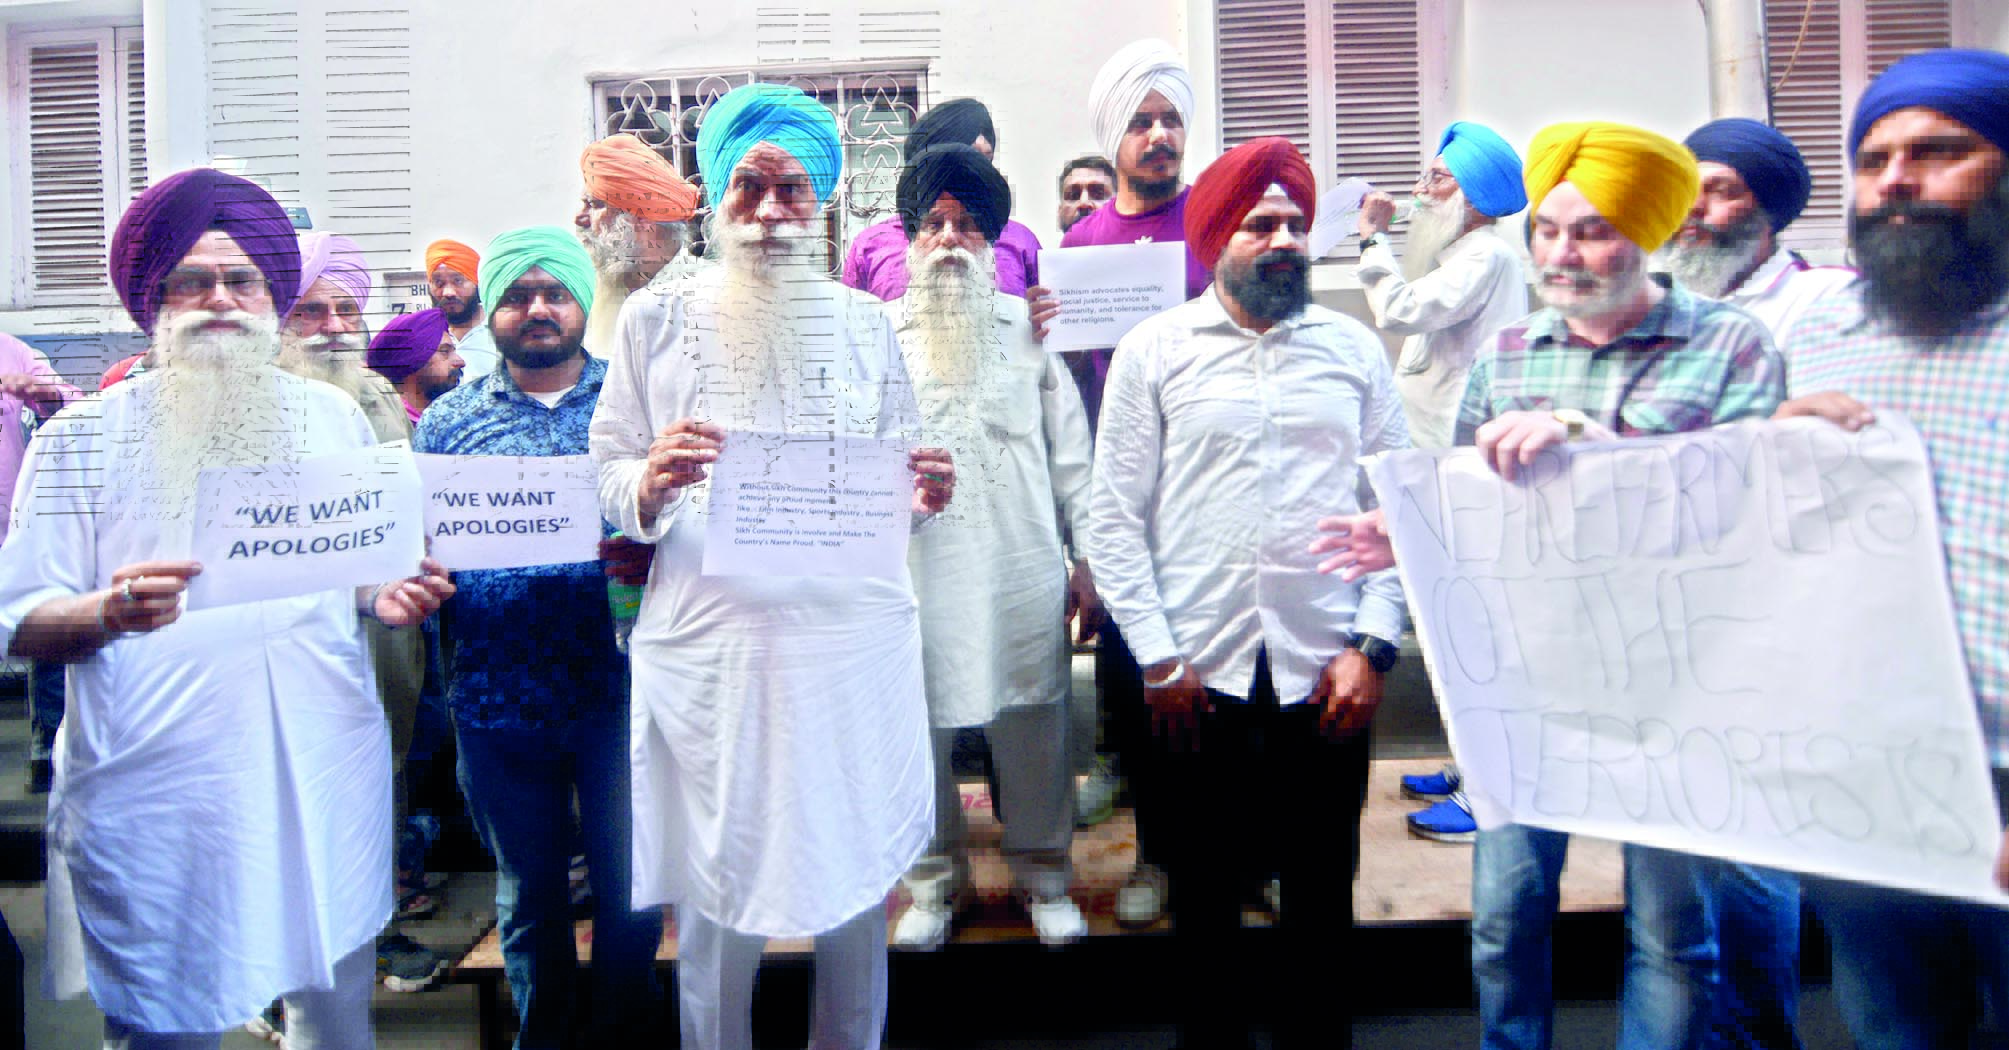 "WE WANT
APOLOGIES"
"WE WANT
APOLOGIES"
Without Sikh Community this country cannot
achieve any proud moments
like Film Industry, Sports Industry, Business
Industry
Sikh Community is involve and Make The
Country's Name Proud. "INDIA"
Sikhism advocates equality,
social justice, service to
humanity, and tolerance for
other religions.
WE'RE FARMERS
NOT THE
TERRORISTS
BH
7